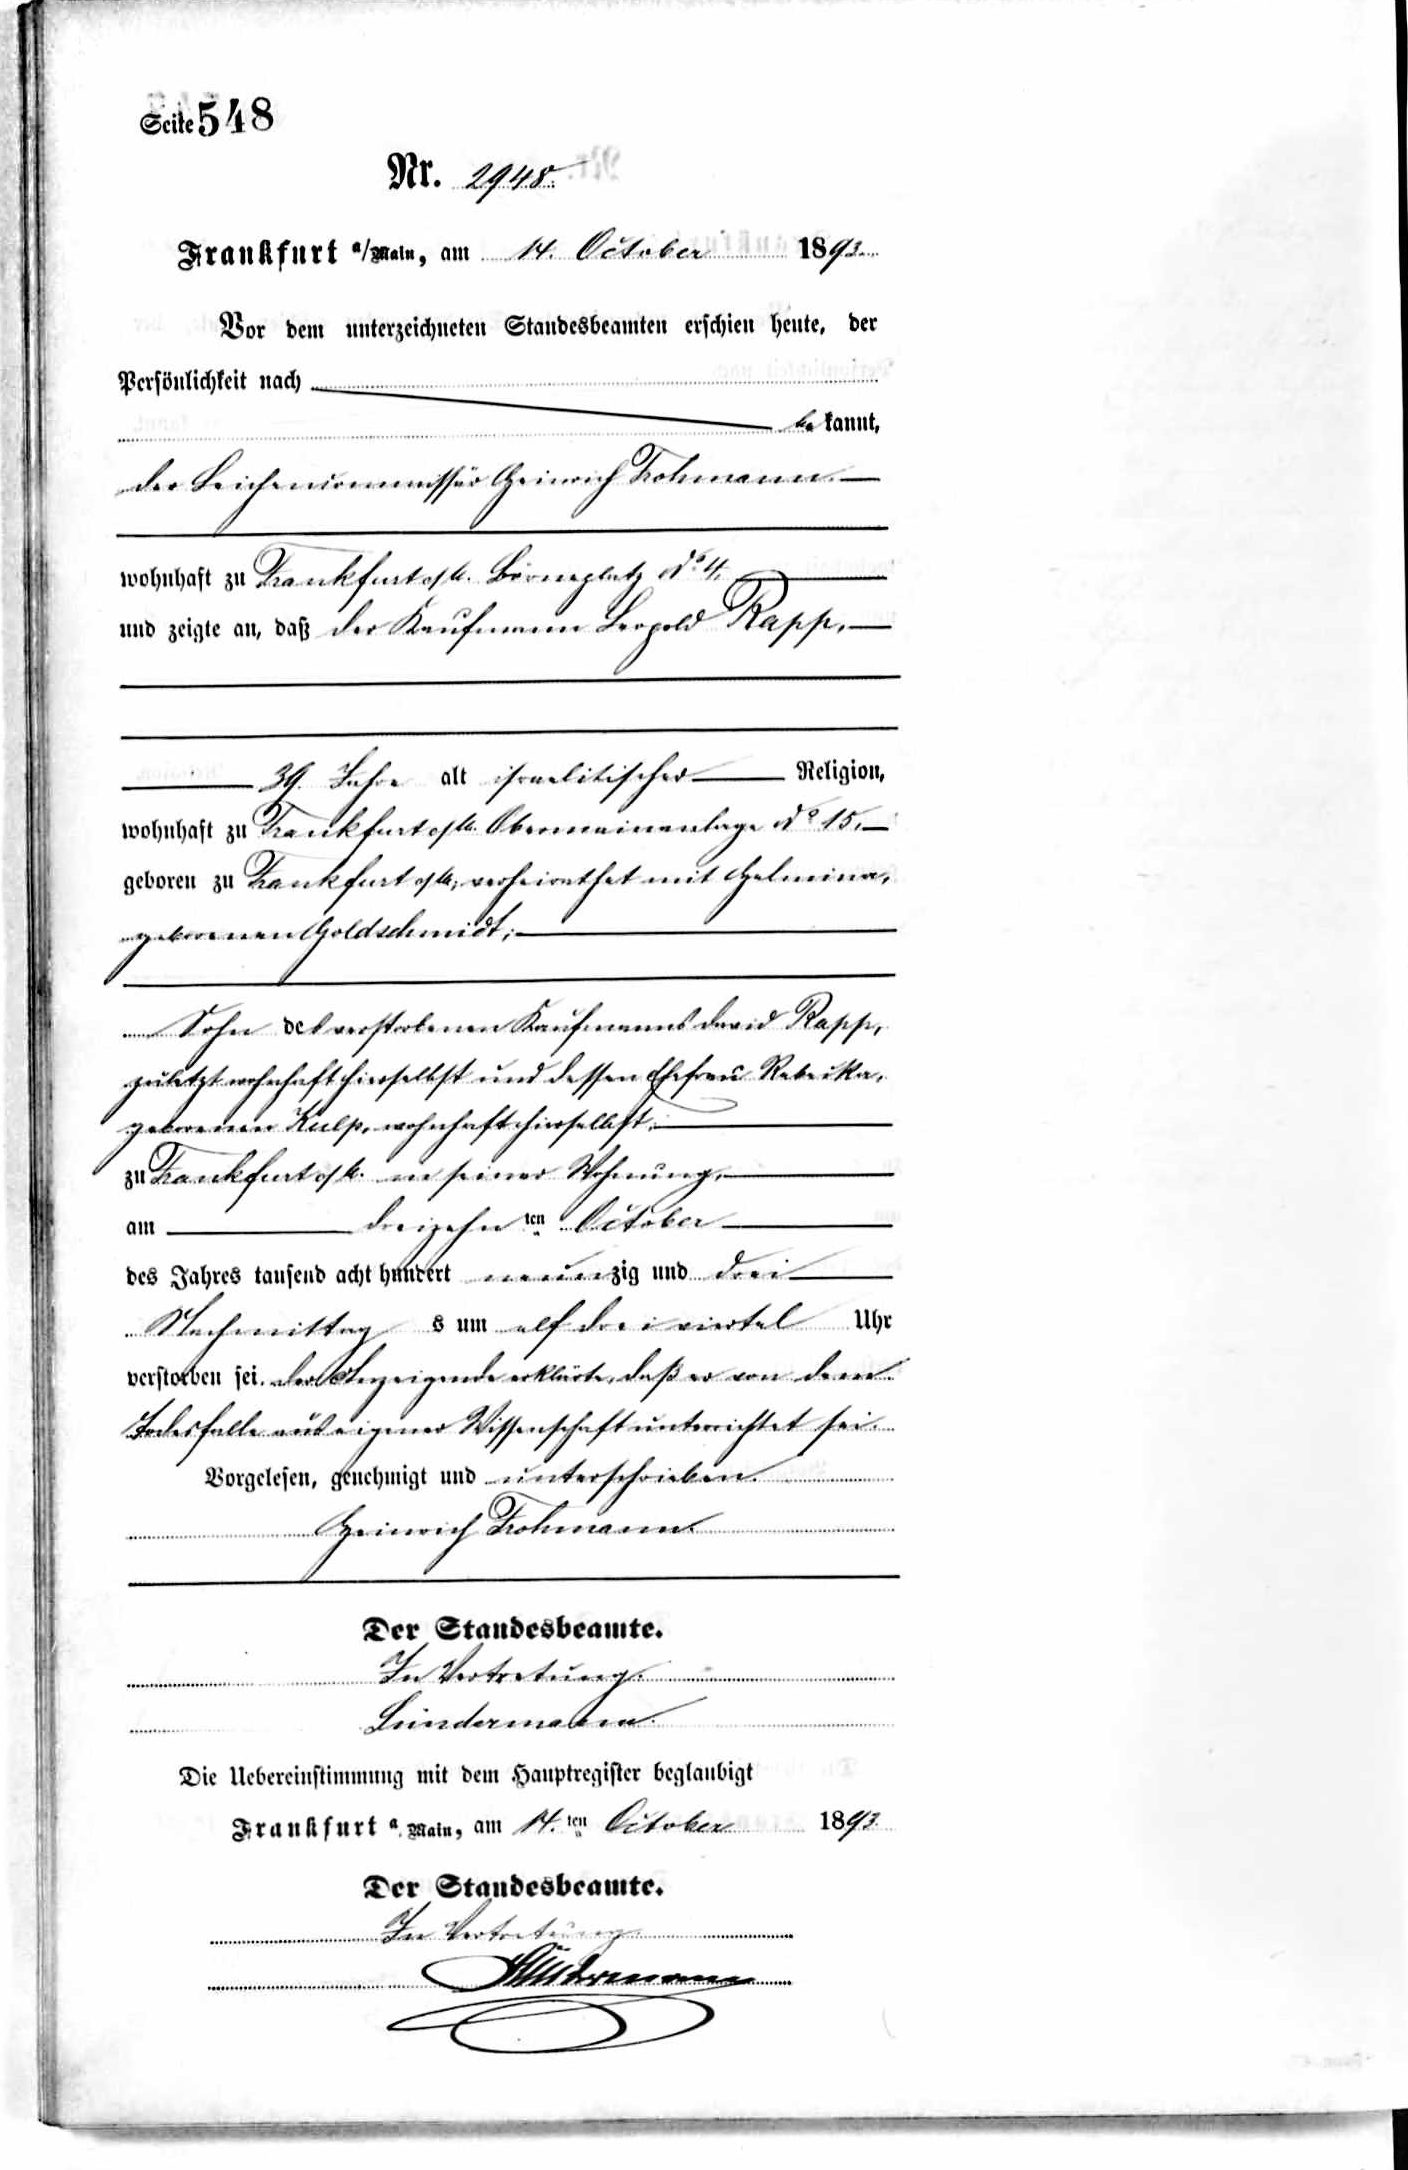 Seite 548
Nr. 2948.
Frankfurt a/Main, am 14. October 1893.
Vor dem unterzeichneten Standesbeamten erschien heute, der
Persönlichkeit nach
bekannt,
der Leichencommissär Heinrich Frohmann.
wohnhaft zu Frankfurt a/M. Börneplatz No. 4,
und zeigte an, daß der Kaufmann Leopold Rapp,
39. Jahre alt israelitischer Religion,
wohnhaft zu Frankfurt a/M. Obermainanlage No 15,
geboren zu Frankfurt a/M, verheirathet mit Helmina,
geborenen Goldschmidt;
Sohn des verstorbenen Kaufmanns David Rapp,
zuletzt wohnhaft hierselbst und dessen Ehefrau Rebecka,
geborenen Kulp, wohnhaft hierselbst,
zu Frankfurt a/M. in seiner Wohnung,
am dreizehn ten October
des Jahres tausend acht hundert neunzig und drei
Nachmittag s um elf dreiviertel Uhr
verstorben sei. Der Anzeigende erklärte, daß er von dem
Todesfalle aus eigener Wissenschaft unterrichtet sei.
Vorgelesen, genehmigt und unterschrieben.
Heinrich Frohmann.
Der Standesbeamte.
In Vertretung.
Lindermann.
Die Uebereinstimmung mit dem Hauptregister beglaubigt
Frankfurt a. Main, am 14. ten October 1893
Der Standesbeamte.
In Vertretung